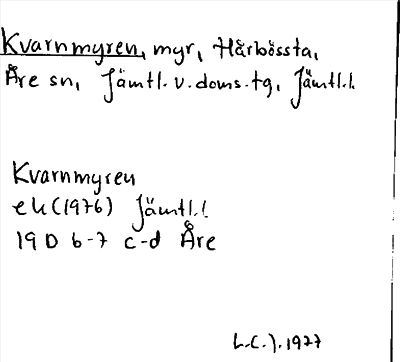 Kvarnmyren, myr, Hårbössta,
Åre sn, Jämtl. v. doms. tg, Jämtl.l.
Kvarnmyren
ek (1976) Jämtl.l
19 D 6-7 c-d Åre
L.C.J. 1977